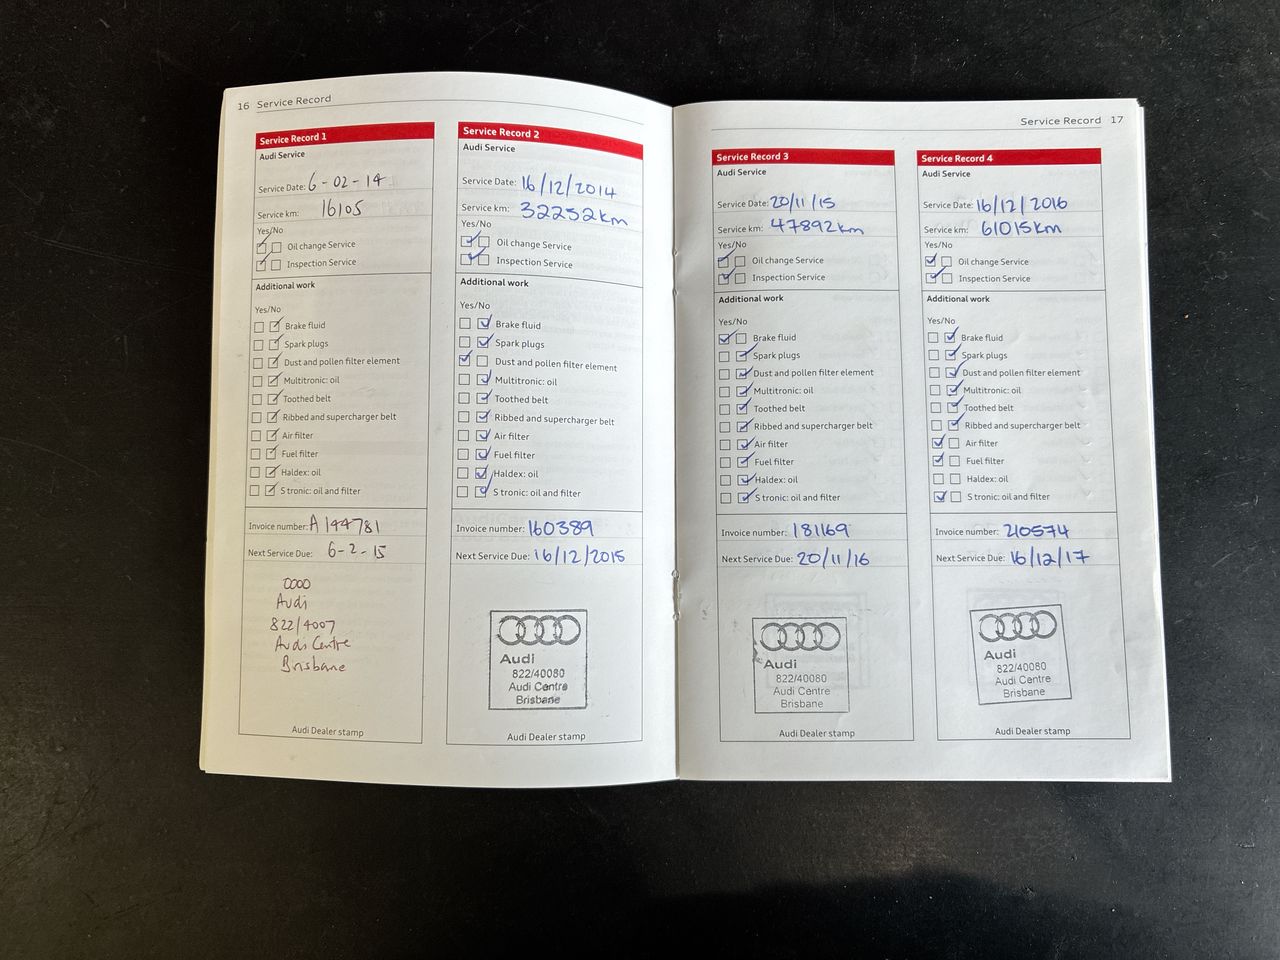 16 Service Record
Service Record 1
Audi Service
Service Date: 6-02-14
Service km: 16105
Yes/No
Oil change Service
Inspection Service
Additional work
Yes/No
Brake fluid
Spark plugs
Dust and pollen filter element
Multitronic: oil
Toothed belt
Ribbed and supercharger belt
Air filter
Fuel filter
Haldex: oil
S tronic: oil and filter
Invoice number: A144781
Next Service Due: 6-2-15
0000
Audi
822/4007
Audi Centre
Brisbane
Audi Dealer stamp
Service Record 2
Audi Service
Service Date: 16/12/2014
Service km: 32252km
Yes/No
Oil change Service
Inspection Service
Additional work
Yes/No
Brake fluid
Spark plugs
Dust and pollen filter element
Multitronic: oil
Toothed belt
Ribbed and supercharger belt
Air filter
Fuel filter
Haldex: oil
S tronic: oil and filter
Invoice number: 160389
Next Service Due: 16/12/2015
Audi
822/40080
Audi Centre
Brisbane
Audi Dealer stamp
Service Record 17
Service Record 3
Audi Service
Service Date: 20/11/15
Service km: 47892km
Yes/No
Oil change Service
Inspection Service
Additional work
Yes/No
Brake fluid
Spark plugs
Dust and pollen filter element
Multitronic: oil
Toothed belt
Ribbed and supercharger belt
Air filter
Fuel filter
Haldex: oil
S tronic: oil and filter
Invoice number: 181169
Next Service Due: 20/11/16
Audi
822/40080
Audi Centre
Brisbane
Audi Dealer stamp
Service Record 4
Audi Service
Service Date: 16/12/2016
Service km: 61015km
Yes/No
Oil change Service
Inspection Service
Additional work
Yes/No
Brake fluid
Spark plugs
Dust and pollen filter element
Multitronic: oil
Toothed belt
Ribbed and supercharger belt
Air filter
Fuel filter
Haldex: oil
S tronic: oil and filter
Invoice number: 210574
Next Service Due: 16/12/17
Audi
822/40080
Audi Centre
Brisbane
Audi Dealer stamp